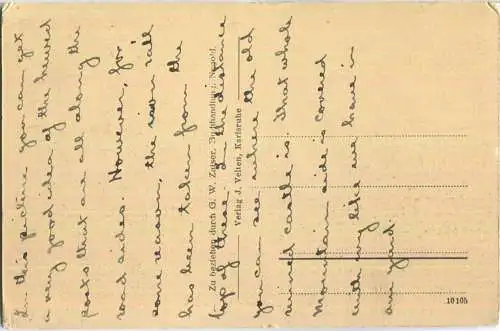 In this picture you can get
a very good idea of the hewed
posts that are all along the
road sides. However, for
some reason, the iron rail
has been taken from the
top of these. In the distance
you can see where the old
ruined castle is. That whole
mountain side is covered
with ivy like we have in
our yard.
Zu beziehen durch G. W. Zaiser, Buchhandlung, Nagold.
Verlag J. Velten, Karlsruhe
10105